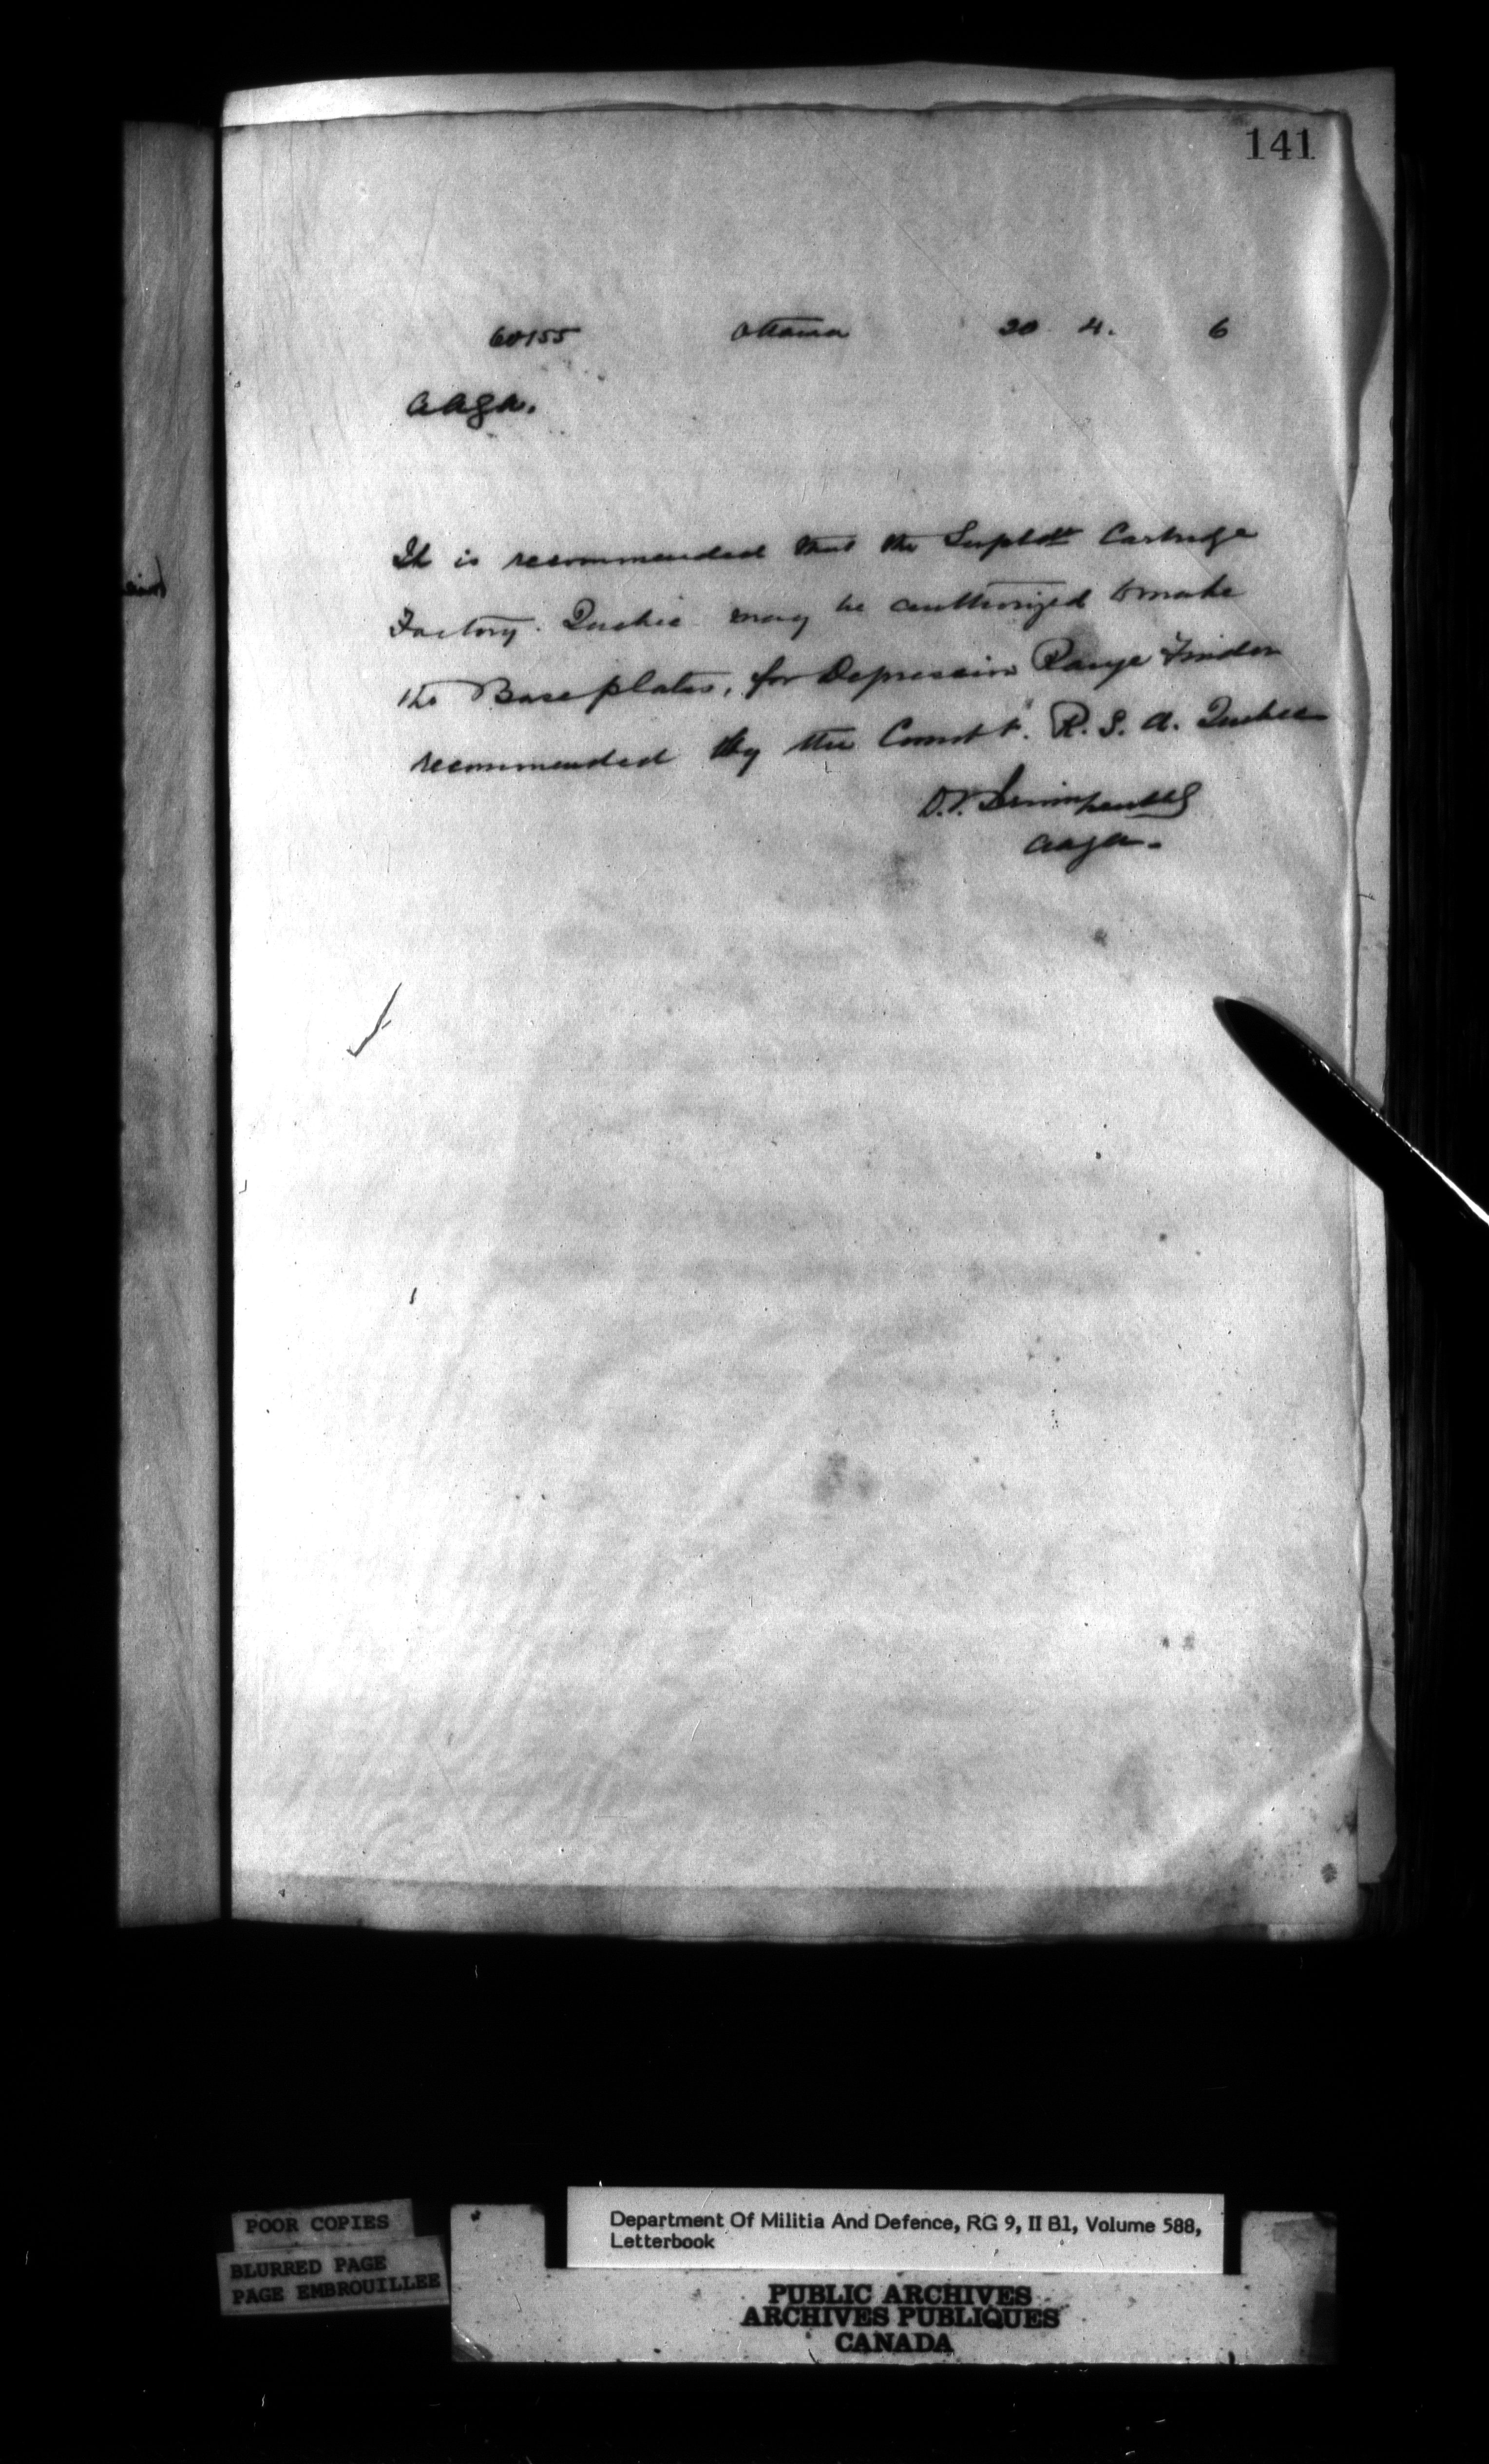 141
60155 Ottawa 20 4. 6
AAGA.
It is recommended that the Suptdt Cartridge
Factory. Quebec may be authorized to make
the Base plates, for Depression Range Finder
recommended by the Comdt. R. S. A. Quebec
D.T. Irwin
AAGA.
POOR COPIES
BLURRED PAGE
PAGE EMBROUILLEE
Department Of Militia And Defence, RG 9, II B1, Volume 588,
Letterbook
PUBLIC ARCHIVES
ARCHIVES PUBLIQUES
CANADA